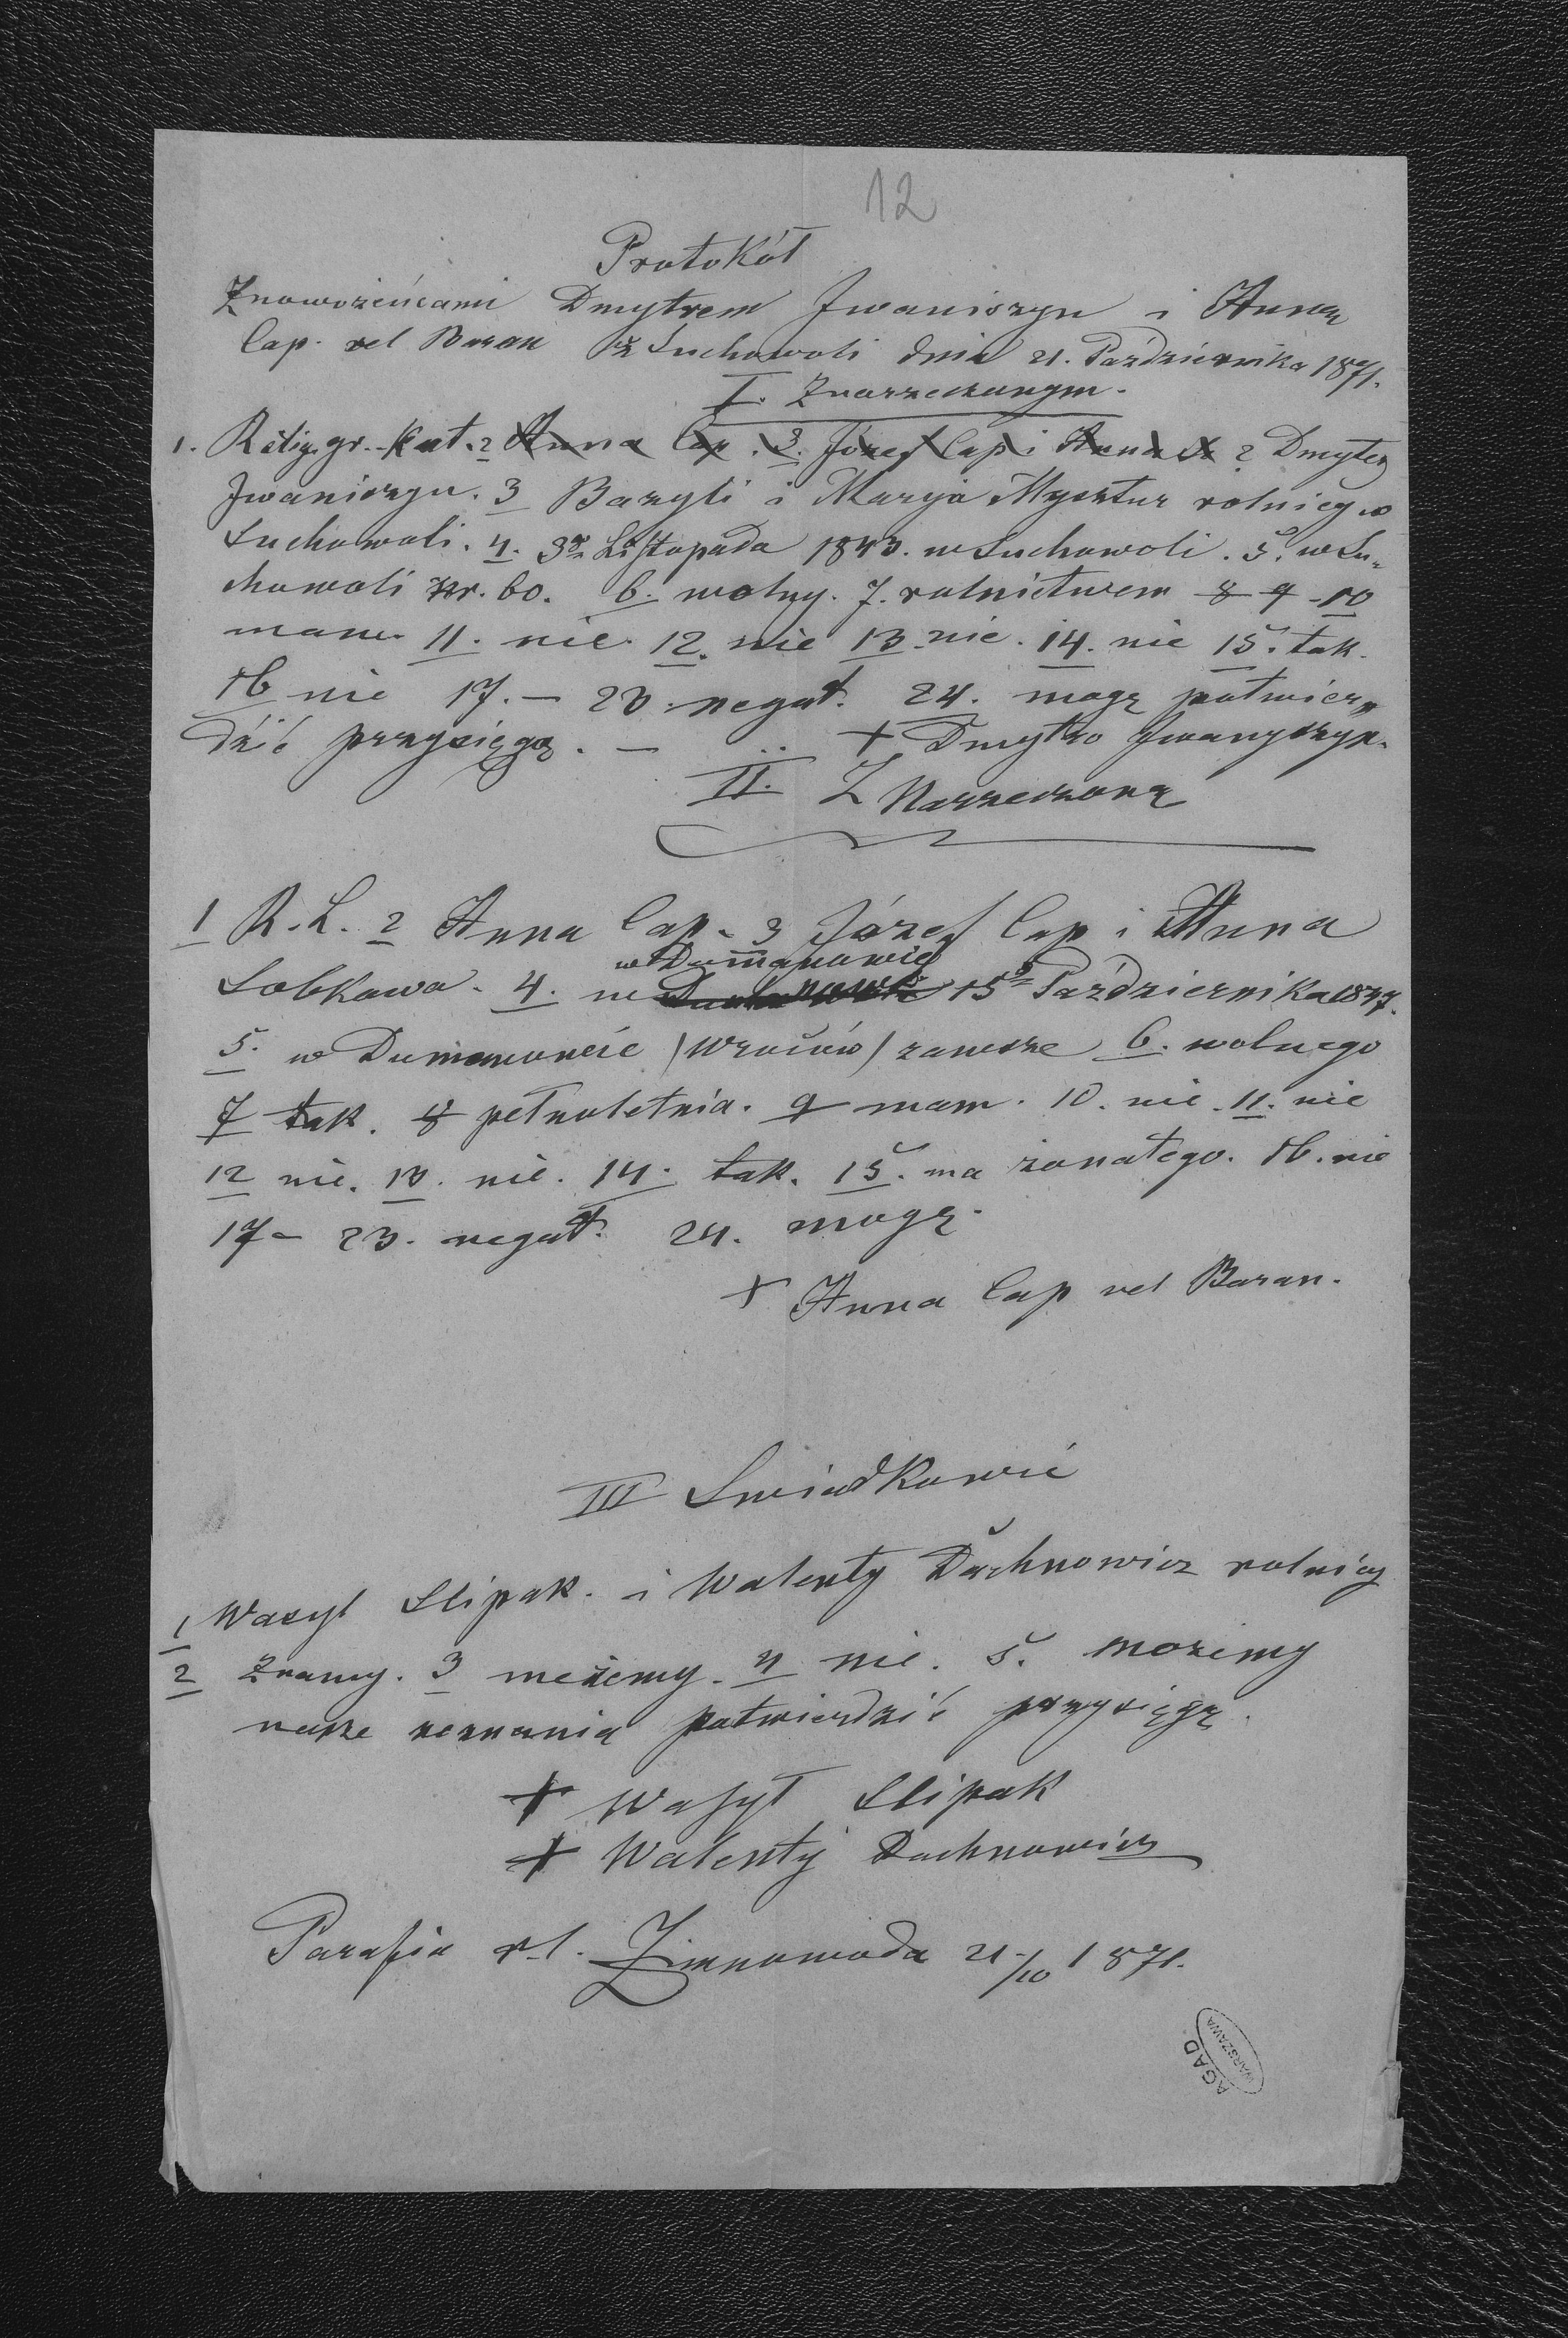 12
Protokół
Znowożeńcami Dmytrem Iwaniszyn i Anną
Cap. vel Baran z Suchowoli dnia 21. Października 1871.
I. Znarzeczonym.
1. Relig. gr. Kat. 2 Anna Cap. 3. Józef Cap i Anna 2 Dmyter
Iwaniszyn. 3 Bazyli i Marya Mysztur rolnicy w
Suchowoli. 4. 3go Listopada 1843. w Suchowoli. 5. w Su„
chowoli Nr. 60. 6. wolny. 7. rolnictwem 8 9 - 10
mam. 11. nie. 12. nie 13. nie. 14. nie 15. tak.
16 nie 17. — 23. negat. 24. mogę potwier„
dzić przysięgą. — + Dmytro Iwanyszyn.
II. Z Narzeczoną
1 R. L. 2 Anna Cap. 3 Józef Cap i Anna
w Dumanowie
Sobkowa. 4. w 15go Października 1847.
5. w Dumanowie /Wroców/ zawsze 6. wolnego
7 tak. 8 pełnoletnia. 9 mam. 10. nie. 11. nie
12 nie. 13. nie. 14. tak. 15. ma żonatego. 16. nie
17 - 23. negat. 24. mogę.
+ Anna Cap vel Baran.
III Swiadkowie
1 Wasyl Slipak. i Walenty Dachnowicz rolnicy
2 Znamy. 3 możemy. 4 nie. 5. mozemy
nasze zeznania potwierdzić przysięgą.
+ Wasyl Slipak
+ Walenty Dachnowicz
Parafia r. l. Zimnawoda 21/10 1871.
AGAD
WARSZAWA